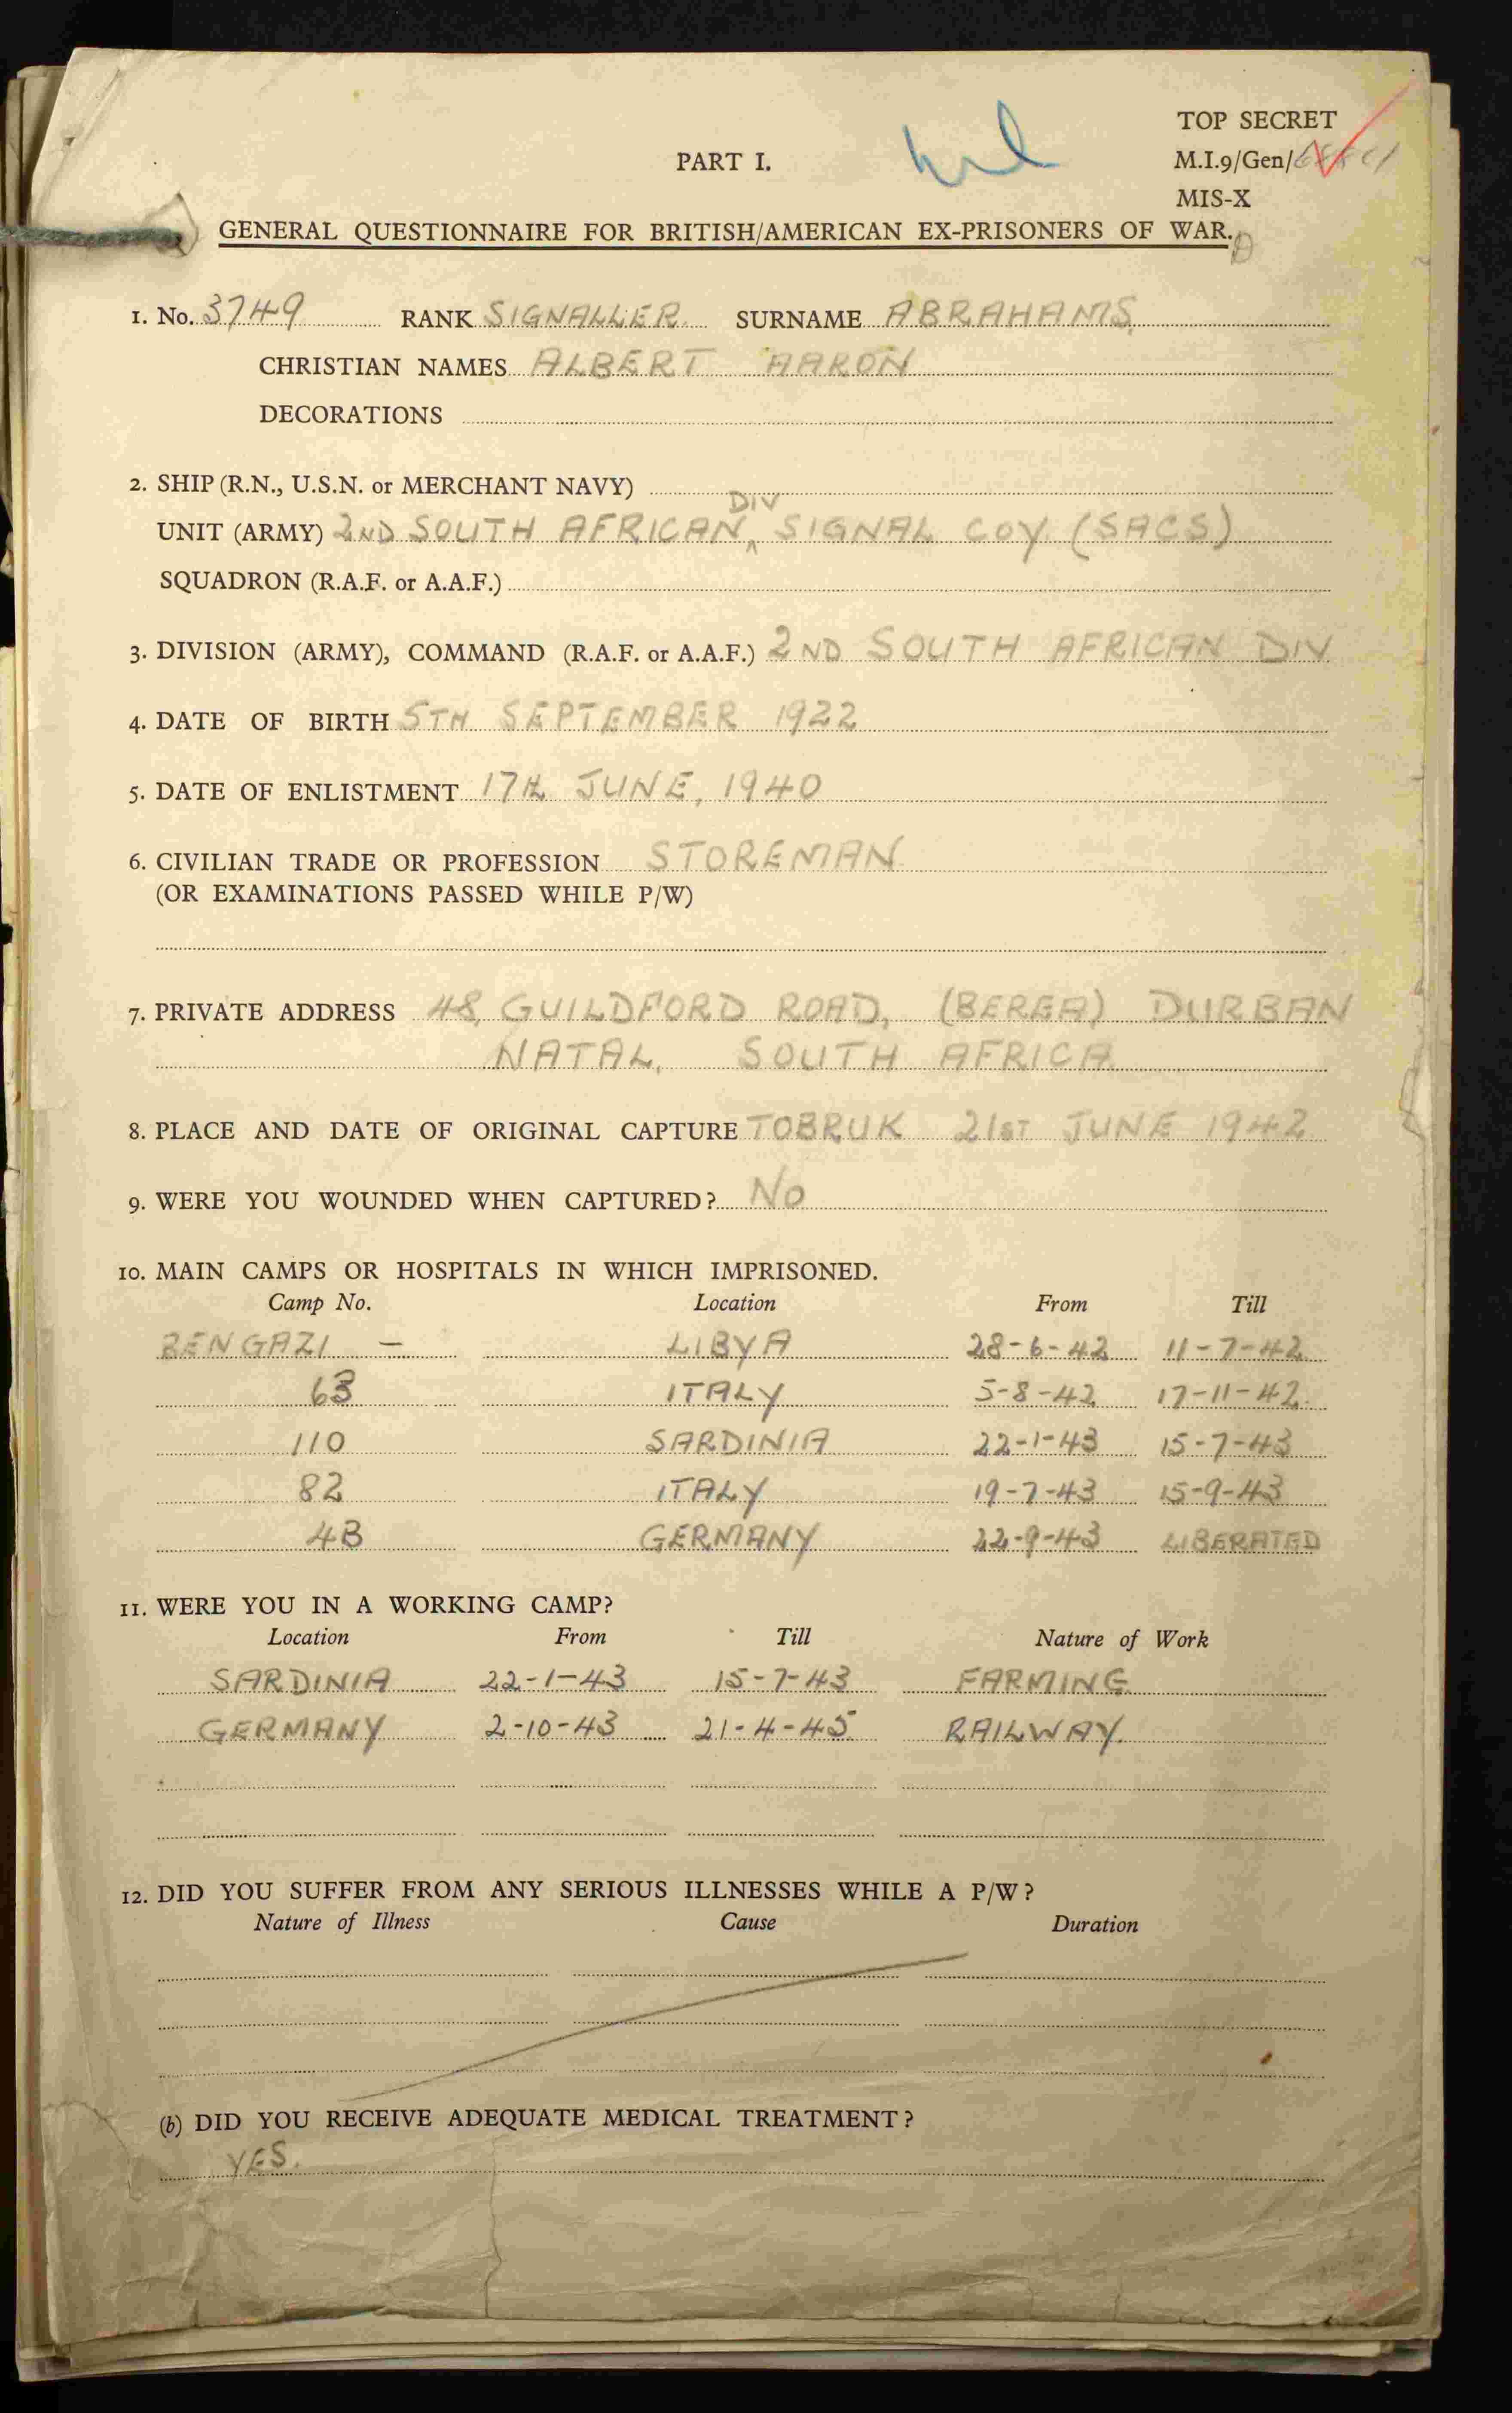 TOP SECRET
PART I.
M.I.9/Gen/
MIS-X
GENERAL QUESTIONNAIRE FOR BRITISH/AMERICAN EX-PRISONERS OF WAR.
1. No. 3749 RANK SIGNALLER SURNAME ABRAHAMS
CHRISTIAN NAMES ALBERT AARON
DECORATIONS
2. SHIP (R.N., U.S.N. or MERCHANT NAVY)
UNIT (ARMY) 2ND SOUTH AFRICAN DIV SIGNAL COY (SACS)
SQUADRON (R.A.F. or A.A.F.)
3. DIVISION (ARMY), COMMAND (R.A.F. or A.A.F.) 2ND SOUTH AFRICAN DIV
4. DATE OF BIRTH 5TH SEPTEMBER 1922
5. DATE OF ENLISTMENT 17th JUNE, 1940
6. CIVILIAN TRADE OR PROFESSION STOREMAN
(OR EXAMINATIONS PASSED WHILE P/W)
7. PRIVATE ADDRESS 48, GUILDFORD ROAD, (BEREA) DURBAN
NATAL, SOUTH AFRICA
8. PLACE AND DATE OF ORIGINAL CAPTURE TOBRUK 21ST JUNE 1942
9. WERE YOU WOUNDED WHEN CAPTURED? NO
10. MAIN CAMPS OR HOSPITALS IN WHICH IMPRISONED.
Camp No. Location From Till
BENGAZI — LIBYA 28-6-42 11-7-42
63 ITALY 5-8-42 17-11-42
110 SARDINIA 22-1-43 15-7-43
82 ITALY 19-7-43 15-9-43
4B GERMANY 22-9-43 LIBERATED
11. WERE YOU IN A WORKING CAMP?
Location From Till Nature of Work
SARDINIA 22-1-43 15-7-43 FARMING
GERMANY 2-10-43 21-4-45 RAILWAY.
12. DID YOU SUFFER FROM ANY SERIOUS ILLNESSES WHILE A P/W?
Nature of Illness Cause Duration
(b) DID YOU RECEIVE ADEQUATE MEDICAL TREATMENT?
YES.